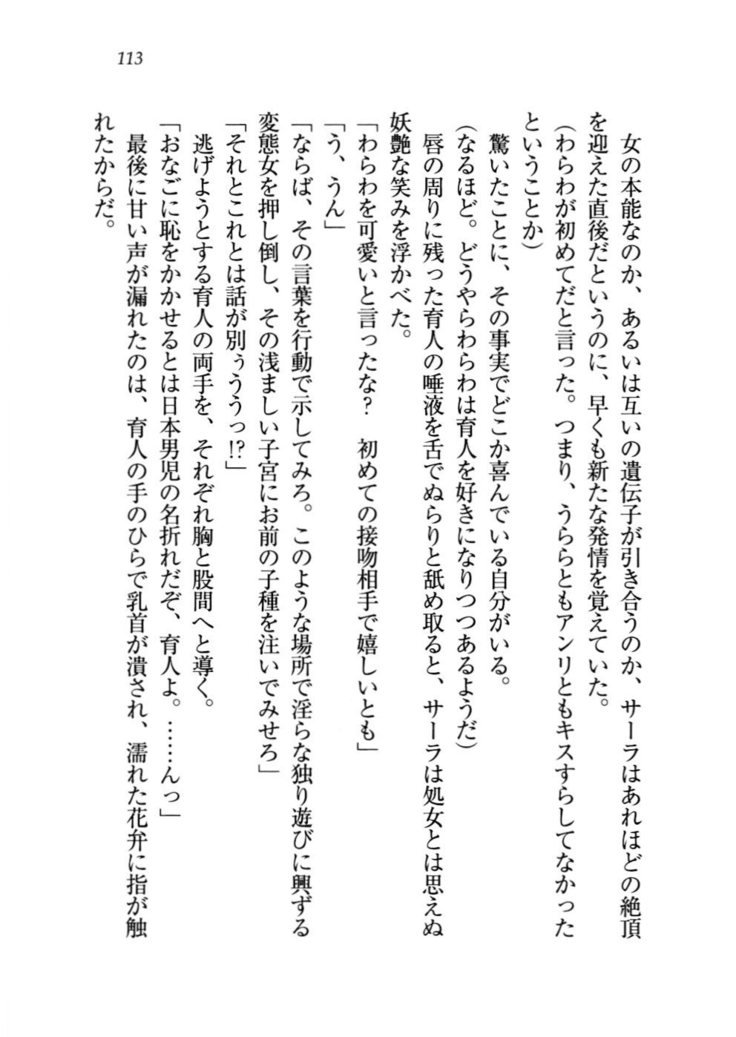 113
女の本能なのか、あるいは互いの遺伝子が引き合うのか、サーラはあれほどの絶頂
を迎えた直後だというのに、早くも新たな発情を覚えていた。
(わらわが初めてだと言った。つまり、うららともアンリともキスすらしてなかった
ということか)
驚いたことに、その事実でどこか喜んでいる自分がいる。
(なるほど。どうやらわらわは育人を好きになりつつあるようだ)
唇の周りに残った育人の唾液を舌でぬらりと舐め取ると、サーラは処女とは思えぬ
妖艶な笑みを浮かべた。
「わらわを可愛いと言ったな?　初めての接吻相手で嬉しいとも」
「う、うん」
「ならば、その言葉を行動で示してみろ。このような場所で淫らな独り遊びに興ずる
変態女を押し倒し、その浅ましい子宮にお前の子種を注いでみせろ」
「それとこれとは話が別ぅううっ!?」
逃げようとする育人の両手を、それぞれ胸と股間へと導く。
「おなごに恥をかかせるとは日本男児の名折れだぞ、育人よ。……んっ」
最後に甘い声が漏れたのは、育人の手のひらで乳首が潰され、濡れた花弁に指が触
れたからだ。